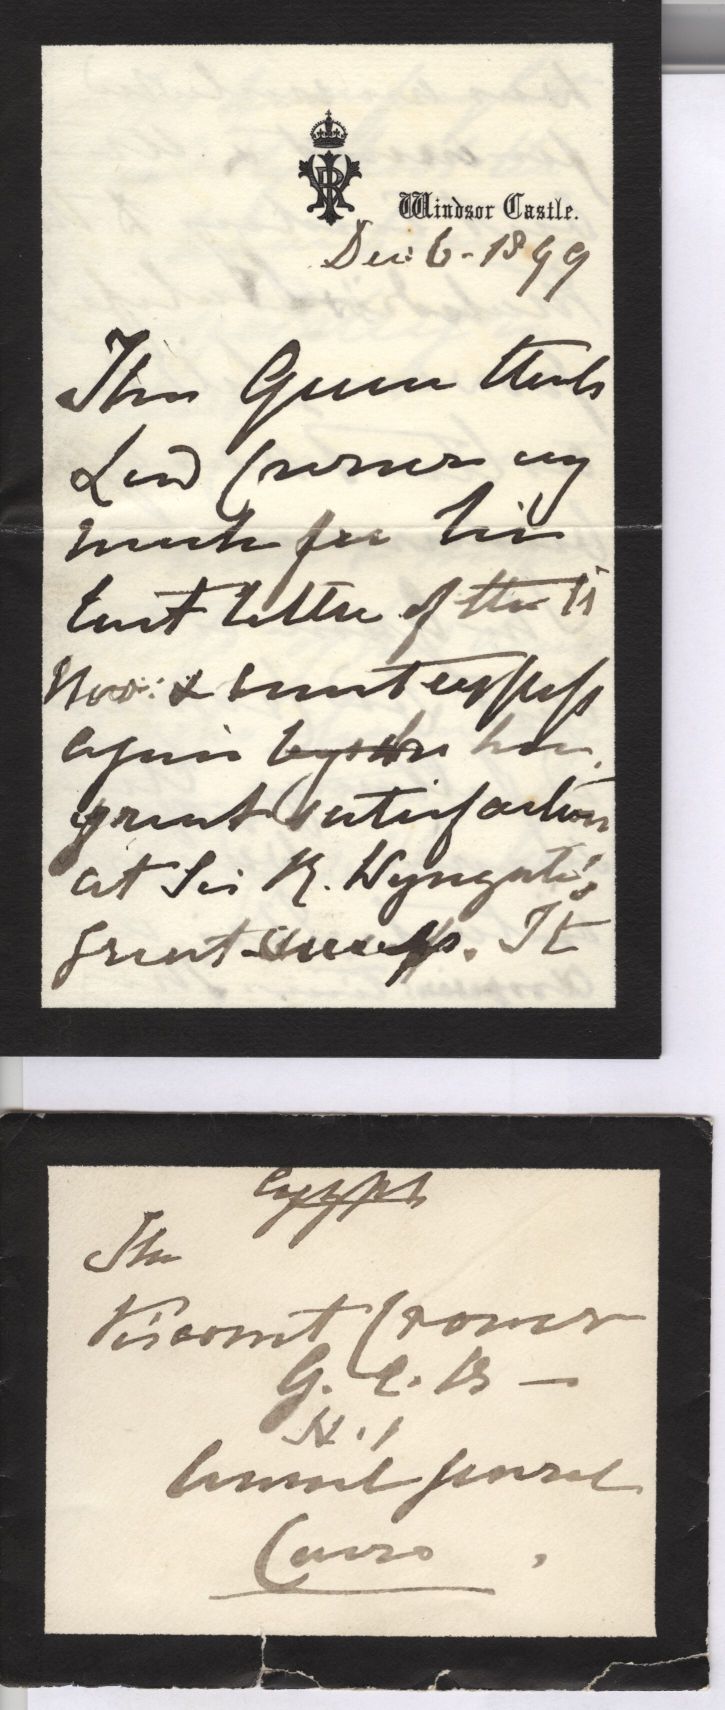 VRI
Windsor Castle.
Dec: 6 - 1899
The Queen thanks
Lord Cromer very
much for his
last letter of the
Nov: & must express
again her
great satisfaction
at Sir R. Wyngate's
great success. It
Egypt
The
Viscount Cromer
G. C. B —
Consul General
Cairo.